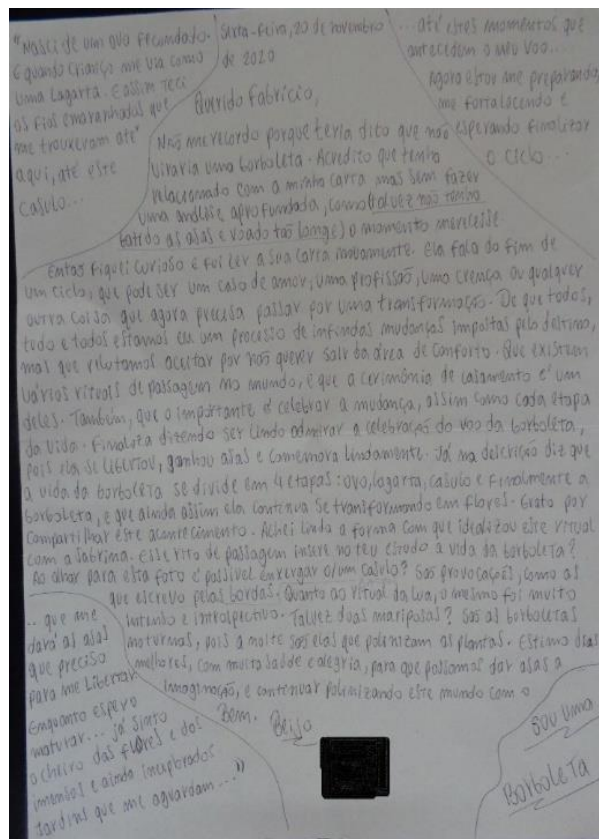 "Nasci de um ovo fecundado.
E quando criança me via como
uma Lagarta. E assim teci
os fios emaranhados que
me trouxeram até
aqui, até este
casulo...
Sexta-feira, 20 de novembro
de 2020
...até estes momentos que
antecedem o meu voo...
Agora estou me preparando,
me fortalecendo e
esperando finalizar
o ciclo...
Querido Fabrício,
Não me recordo porque teria dito que não
viraria uma borboleta. Acredito que tenho
relacionado com a minha carta mas sem fazer
uma análise aprofundada, como (talvez não tenha
batido as asas e voado tão longe) o momento merecesse.
Então fiquei curioso e fui ler a sua carta novamente. Ela fala do fim de
um ciclo, que pode ser um caso de amor, uma profissão, uma crença ou qualquer
outra coisa que agora precisa passar por uma transformação. De que todos,
tudo e todos estamos em um processo de infindas mudanças impostas pelo destino,
mas que relutamos aceitar por não querer sair da área de conforto. Que existem
vários rituais de passagem no mundo, e que a cerimônia de casamento é um
deles. Também, que o importante é celebrar a mudança, assim como cada etapa
da vida. Finaliza dizendo ser lindo admirar a celebração do voo da borboleta,
pois ela se libertou, ganhou asas e comemora lindamente. Já na descrição diz que
a vida da borboleta se divide em 4 etapas: ovo, lagarta, casulo e finalmente a
borboleta, e que ainda assim ela continua se transformando em flores. Grato por
compartilhar este acontecimento. Achei linda a forma com que idealizou este ritual
com a Sabrina. Esse rito de passagem insere no teu estado a vida da borboleta?
Ao olhar para esta foto é possível enxergar o/um casulo? São provocações, como as
que escrevo pelas bordas. Quanto ao ritual da lua, o mesmo foi muito
intenso e introspectivo. Talvez duas mariposas? São as borboletas
noturnas, pois a noite são elas que polenizam as plantas. Estimo dias
melhores, com muita saúde e alegria, para que possamos dar asas a
imaginação, e continuar polinizando este mundo com o
Bem. Beijo
... que me
dará as asas
que preciso
para me Libertar.
Enquanto espero
maturar... já sinto
o cheiro das flores e dos
imensos e ainda inexplorados
Jardins que me aguardam..."
Sou uma
Borboleta